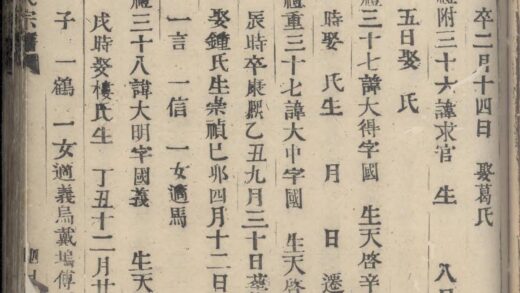 卒二月十四日 娶葛氏
禮附三十六諱求官 生 八月
五日娶 氏
禮三十七諱大得字國 生天啓辛
時娶 氏生 月 日 遷
禮重三十七諱大中字國 生天啓
辰時卒康熙乙丑九月三十日葬
娶鍾氏生崇禎己卯四月十二日
一言 一信 一女適馬
禮三十八諱大明字國義 生天
戌時娶樓氏生 丁丑十二月廿
子 一鶴 一女適義烏戴塢傅
宗譜